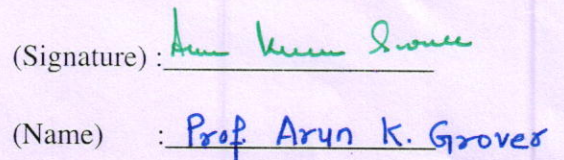 (Signature) : Arun Kumar Grover
(Name) : Prof. Arun K. Grover